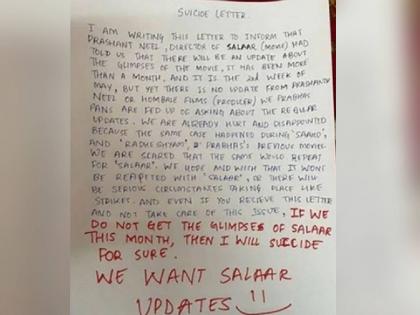 SUICIDE LETTER.
I AM WRITING THIS LETTER TO INFORM THAT
PRASHANT NEEL, DIRECTOR OF SALAAR (MOVIE) HAD
TOLD US THAT THERE WILL BE AN UPDATE ABOUT
THE GLIMPSES OF THE MOVIE, IT HAS BEEN MORE
THAN A MONTH, AND IT IS THE 2nd WEEK OF
MAY, BUT YET THERE IS NO UPDATE FROM PRASHANTH
NEEL OR HOMBALE FILMS (PRODUCER) WE PRABHAS
FANS ARE FED UP OF ASKING ABOUT THE REGULAR
UPDATES. WE ARE ALREADY HURT AND DISAPPOINTED
BECAUSE THE SAME CASE HAPPENED DURING 'SAAHO',
AND 'RADHE SHYAM', PRABHAS'S PREVIOUS MOVIE.
WE ARE SCARED THAT THE SAME WOULD REPEAT
FOR 'SALAAR'. WE HOPE AND WISH THAT IT WONT
BE REAPETED WITH 'SALAAR', OR THERE WILL
BE SERIOUS CIRCUMSTANCES TAKING PLACE LIKE
STRIKES. AND EVEN IF YOU RECIEVE THIS LETTER
AND NOT TAKE CARE OF THIS ISSUE, IF WE
DO NOT GET THE GLIMPSES OF SALAAR
THIS MONTH, THEN I WILL SUICIDE
FOR SURE.
WE WANT SALAAR
UPDATES !!